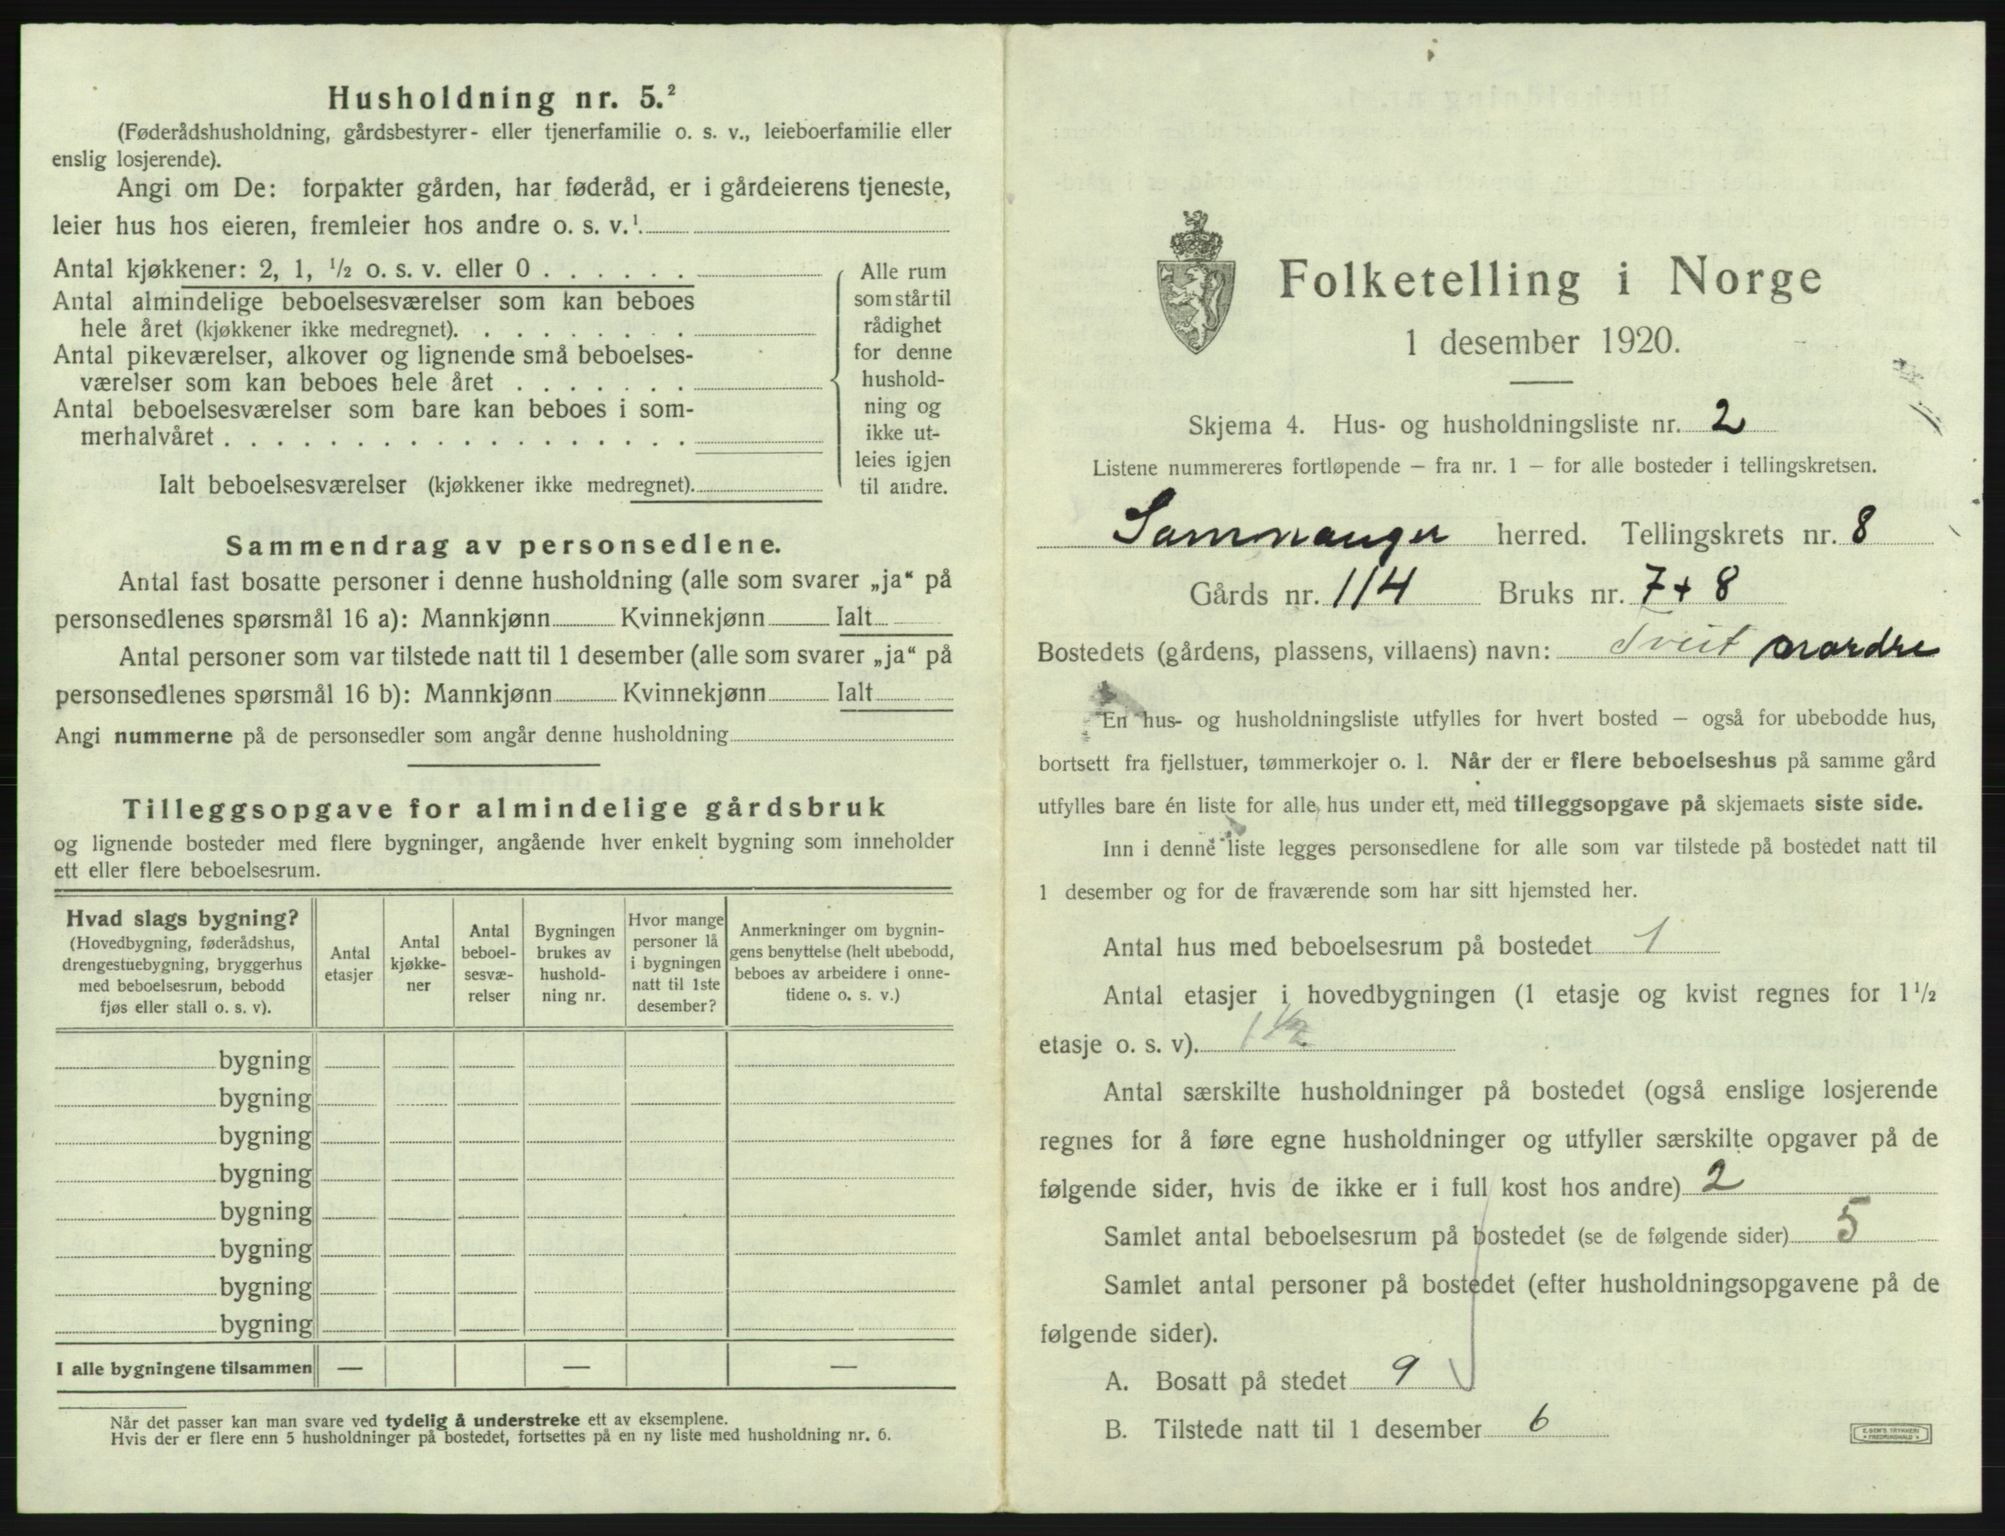 Husholdning nr. 5.²
(Føderådshusholdning, gårdsbestyrer- eller tjenerfamilie o. s. v., leieboerfamilie eller
enslig losjerende).
Angi om De: forpakter gården, har føderåd, er i gårdeierens tjeneste,
leier hus hos eieren, fremleier hos andre o. s. v.¹
Antal kjøkkener: 2, 1, ½ o. s. v. eller 0
Antal almindelige beboelsesværelser som kan beboes
hele året (kjøkkener ikke medregnet).
Antal pikeværelser, alkover og lignende små beboelses-
værelser som kan beboes hele året
Antal beboelsesværelser som bare kan beboes i som-
merhalvåret
Ialt beboelsesværelser (kjøkkener ikke medregnet).
Alle rum
som står til
rådighet
for denne
hushold-
ning og
ikke ut-
leies igjen
til andre.
Sammendrag av personsedlene.
Antal fast bosatte personer i denne husholdning (alle som svarer „ja“ på
personsedlenes spørsmål 16 a): Mannkjønn Kvinnekjønn Ialt
Antal personer som var tilstede natt til 1 desember (alle som svarer „ja“ på
personsedlenes spørsmål 16 b): Mannkjønn Kvinnekjønn Ialt
Angi nummerne på de personsedler som angår denne husholdning
Tilleggsopgave for almindelige gårdsbruk
og lignende bosteder med flere bygninger, angående hver enkelt bygning som inneholder
ett eller flere beboelsesrum.
Hvad slags bygning?
(Hovedbygning, føderådshus,
drengestuebygning, bryggerhus
med beboelsesrum, bebodd
fjøs eller stall o. s. v).
Antal
etasjer
Antal
kjøkke-
ner
Antal
beboel-
sesvæ-
relser
Bygningen
brukes av
hushold-
ning nr.
Hvor mange
personer lå
i bygningen
natt til 1ste
desember?
Anmerkninger om bygnin-
gens benyttelse (helt ubebodd,
beboes av arbeidere i onne-
tidene o. s. v.)
bygning
bygning
bygning
bygning
bygning
bygning
bygning
bygning
I alle bygningene tilsammen — — —
Når det passer kan man svare ved tydelig å understreke ett av eksemplene.
Hvis der er flere enn 5 husholdninger på bostedet, fortsettes på en ny liste med husholdning nr. 6.
Folketelling i Norge
1 desember 1920.
Skjema 4. Hus- og husholdningsliste nr. 2
Listene nummereres fortløpende – fra nr. 1 – for alle bosteder i tellingskretsen.
Samnanger herred. Tellingskrets nr. 8
Gårds nr. 114 Bruks nr. 7 + 8
Bostedets (gårdens, plassens, villaens) navn: Tveit nordre
En hus- og husholdningsliste utfylles for hvert bosted – også for ubebodde hus,
bortsett fra fjellstuer, tømmerkojer o. l. Når der er flere beboelseshus på samme gård
utfylles bare én liste for alle hus under ett, med tilleggsopgave på skjemaets siste side.
Inn i denne liste legges personsedlene for alle som var tilstede på bostedet natt til
1 desember og for de fraværende som har sitt hjemsted her.
Antal hus med beboelsesrum på bostedet 1
Antal etasjer i hovedbygningen (1 etasje og kvist regnes for 1½
etasje o. s. v). 1½
Antal særskilte husholdninger på bostedet (også enslige losjerende
regnes for å føre egne husholdninger og utfyller særskilte opgaver på de
følgende sider, hvis de ikke er i full kost hos andre) 2
Samlet antal beboelsesrum på bostedet (se de følgende sider) 5
Samlet antal personer på bostedet (efter husholdningsopgavene på de
følgende sider).
A. Bosatt på stedet 9
B. Tilstede natt til 1 desember 6
E. SEM'S TRYKKERI
FREDRIKSHALD